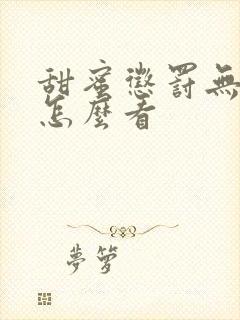 甜蜜懲罰無
怎麼看
夢籮